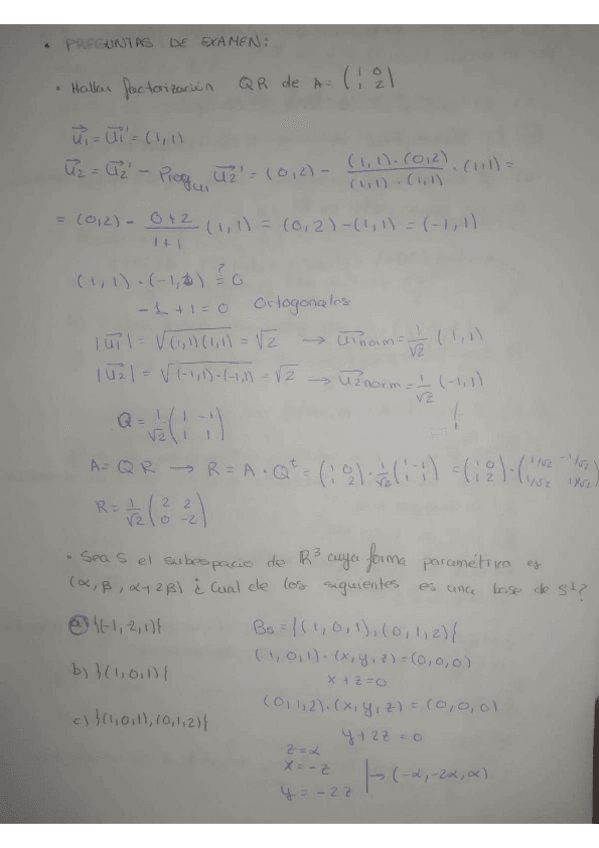 • PREGUNTAS DE EXAMEN:
• Hallar factorización QR de A= (1 0 / 1 2)
u1 = u1' = (1,1)
u2 = u2' - Proy u1 u2' = (0,2) - (1,1)·(0,2) / (1,1)·(1,1) · (1,1) =
= (0,2) - 0+2 / 1+1 (1,1) = (0,2) - (1,1) = (-1,1)
(1,1)·(-1,1) ?= 0
-1 + 1 = 0 Ortogonales
|u1| = √(1,1)(1,1) = √2 → u1norm = 1/√2 (1,1)
|u2| = √(-1,1)·(-1,1) = √2 → u2norm = 1/√2 (-1,1)
Q = 1/√2 (1 -1 / 1 1)
A = QR → R = A · Q^t = (1 0 / 1 2) · 1/√2 (1 -1 / 1 1) = (1 0 / 1 2) · (1/√2 -1/√2 / 1/√2 1/√2)
R = 1/√2 (2 2 / 0 -2)
• Sea S el subespacio de R³ cuya forma paramétrica es
(α, β, α+2β) ¿Cual de los siguientes es una base de S⊥?
a) {(-1,2,1)}
b) {(1,0,1)}
c) {(1,0,1),(0,1,2)}
Bs = {(1,0,1),(0,1,2)}
(1,0,1)·(x,y,z) = (0,0,0)
x+z=0
(0,1,2)·(x,y,z) = (0,0,0)
y+2z=0
z=α
x=-z → (-α,-2α,α)
y=-2z